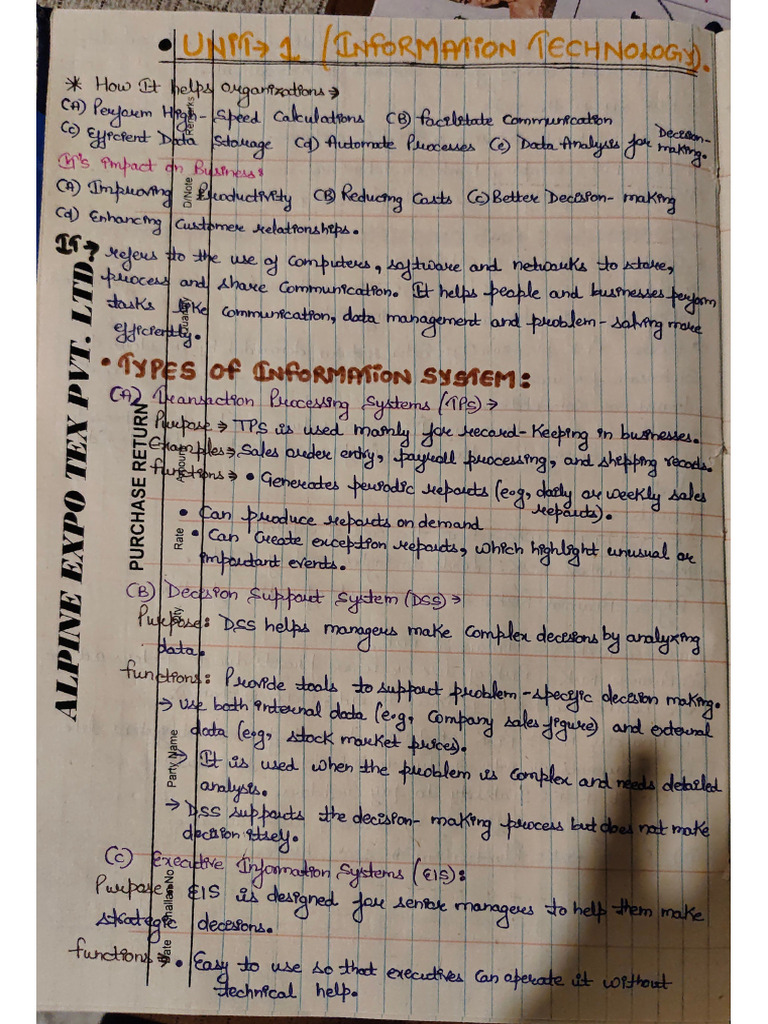 • UNIT → 1 (INFORMATION TECHNOLOGY).
* How It helps organizations →
(A) Perform High-Speed Calculations (B) Facilitate Communication
(C) Efficient Data Storage (d) Automate Processes (e) Data Analysis for Decision-making.
It's impact on Business:
(A) Improving Productivity (B) Reducing Costs (C) Better Decision-making
(d) Enhancing Customer relationships.
It → refers to the use of computers, software and networks to store,
process and share Communication. It helps people and businesses perform
tasks like communication, data management and problem-solving more
efficiently.
• TYPES OF INFORMATION SYSTEM:
(A) Transaction Processing Systems (TPS) →
Purpose → TPS is used mainly for record-keeping in businesses.
Examples → Sales order entry, payroll processing, and shipping records.
functions → • Generates periodic reports (e.g, daily or weekly sales
reports).
• Can produce reports on demand
• Can Create exception reports, which highlight unusual or
important events.
(B) Decision Support System (DSS) →
Purpose: DSS helps managers make Complex decisions by analyxing
data.
functions: Provide tools to support problem-specific decision making.
→ use both internal data (e.g, Company sales figure) and external
data (e.g, stock market prices).
→ It is used when the problem is complex and needs detailed
analysis.
→ DSS supports the decision-making process but does not make
decision itself.
(C) Executive Information Systems (EIS):
Purpose: EIS is designed for senior managers to help them make
strategic decisions.
functions → • Easy to use so that executives can operate it without
technical help.
ALPINE EXPO TEX PVT. LTD.
PURCHASE RETURN
Remarks
D/Note
Quantity
Amount
Rate
Qty
Party Name
Challan No
Date